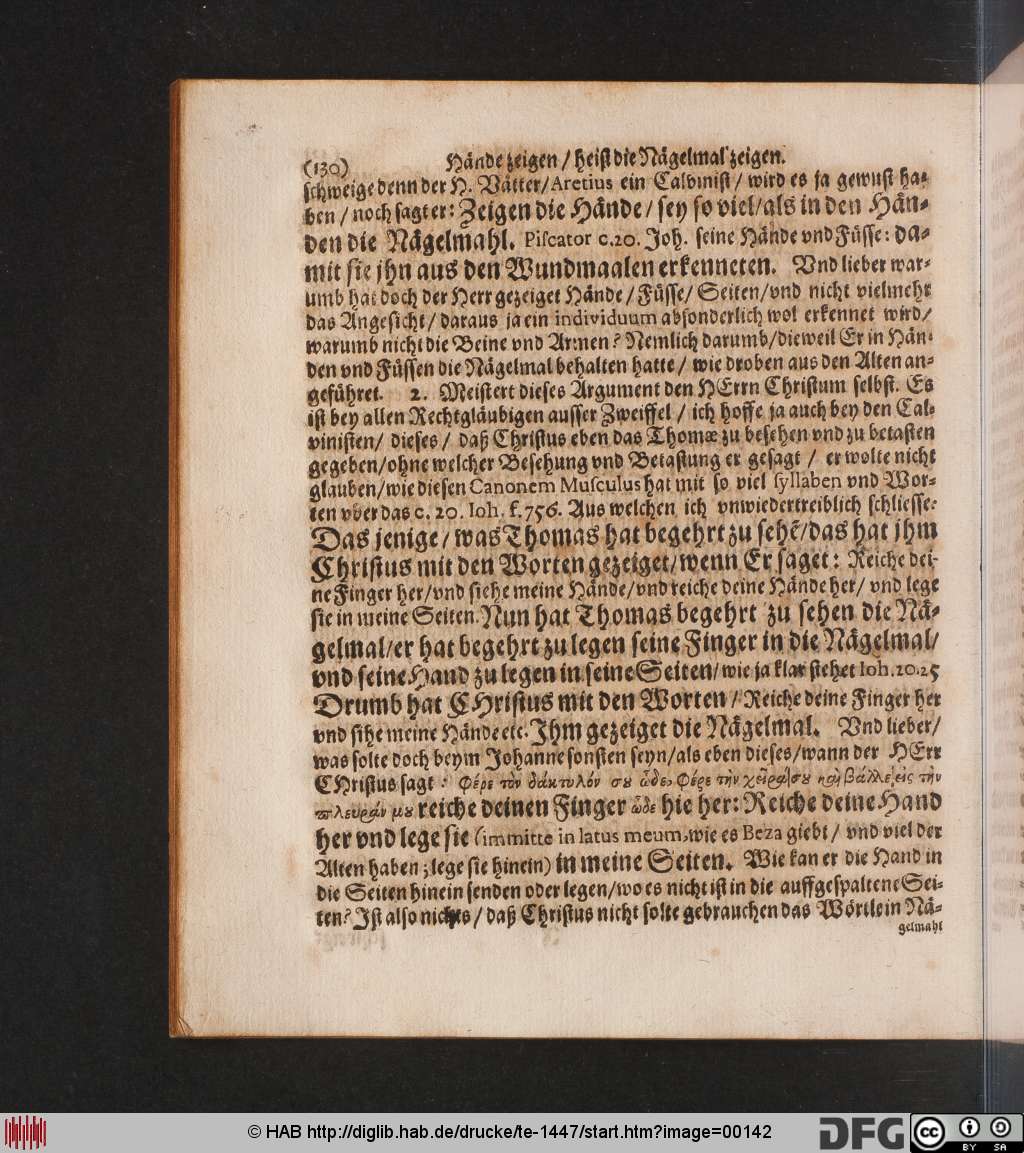 (130) Hände zeigen / heist die Nägelmal zeigen.
schweige denn der H. Vätter/ Aretius ein Calvinist / wird es ja gewust ha-
ben / noch sagt er: Zeigen die Hände / sey so viel / als in den Hän-
den die Nägelmahl. Piscator c.20. Joh. seine Hände vnd Füsse: da-
mit sie jhn aus den Wundmaalen erkenneten. Vnd lieber war-
umb hat doch der Herr gezeiget Hände / Füsse / Seiten / vnd nicht vielmehr
das Angesicht / daraus ja ein individuum absonderlich wol erkennet wird/
warumb nicht die Beine vnd Armen? Nemlich darumb / dieweil Er in Hän-
den vnd Füssen die Nägelmal behalten hatte / wie droben aus den Alten an-
geführet. 2. Meistert dieses Argument den HErrn Christum selbst. Es
ist bey allen Rechtgläubigen ausser Zweiffel / ich hoffe ja auch bey den Cal-
vinisten / dieses / daß Christus eben das Thomæ zu besehen vnd zu betasten
gegeben / ohne welcher Besehung vnd Betastung er gesagt / er wolte nicht
glauben / wie diesen Canonem Musculus hat mit so viel syllaben vnd Wor-
ten vber das c. 20. Ioh. f.756. Aus welchen ich vnwiedertreiblich schliesse:
Das jenige / was Thomas hat begehrt zu sehẽ / das hat jhm
Christus mit den Worten gezeiget / wenn Er saget: Reiche dei-
ne Finger her / vnd siehe meine Hände / vnd reiche deine Hände her / vnd lege
sie in meine Seiten. Nun hat Thomas begehrt zu sehen die Nä-
gelmal / er hat begehrt zu legen seine Finger in die Nägelmal /
vnd seine Hand zu legen in seine Seiten / wie ja klar stehet Ioh. 20.25
Drumb hat CHristus mit den Worten / Reiche deine Finger her
vnd sihe meine Hände etc. Ihm gezeiget die Nägelmal. Vnd lieber /
was solte doch beym Johanne sonsten seyn / als eben dieses / wann der HErr
CHristus sagt: Φέρε τὸν δάκτυλόν σου ὧδε, φέρε τὴν χεῖρά σου καὶ βάλλε εἰς τὴν
πλευράν μου reiche deinen Finger ὧδε hie her: Reiche deine Hand
her vnd lege sie (immitte in latus meum, wie es Beza giebt / vnd viel der
Alten haben; lege sie hinein) in meine Seiten. Wie kan er die Hand in
die Seiten hinein senden oder legen / wo es nicht ist in die auffgespaltene Sei-
ten? Ist also nichts / daß Christus nicht solte gebrauchen das Wörtlein Nä-
gelmahl
© HAB http://diglib.hab.de/drucke/te-1447/start.htm?image=00142
DFG
CC BY SA